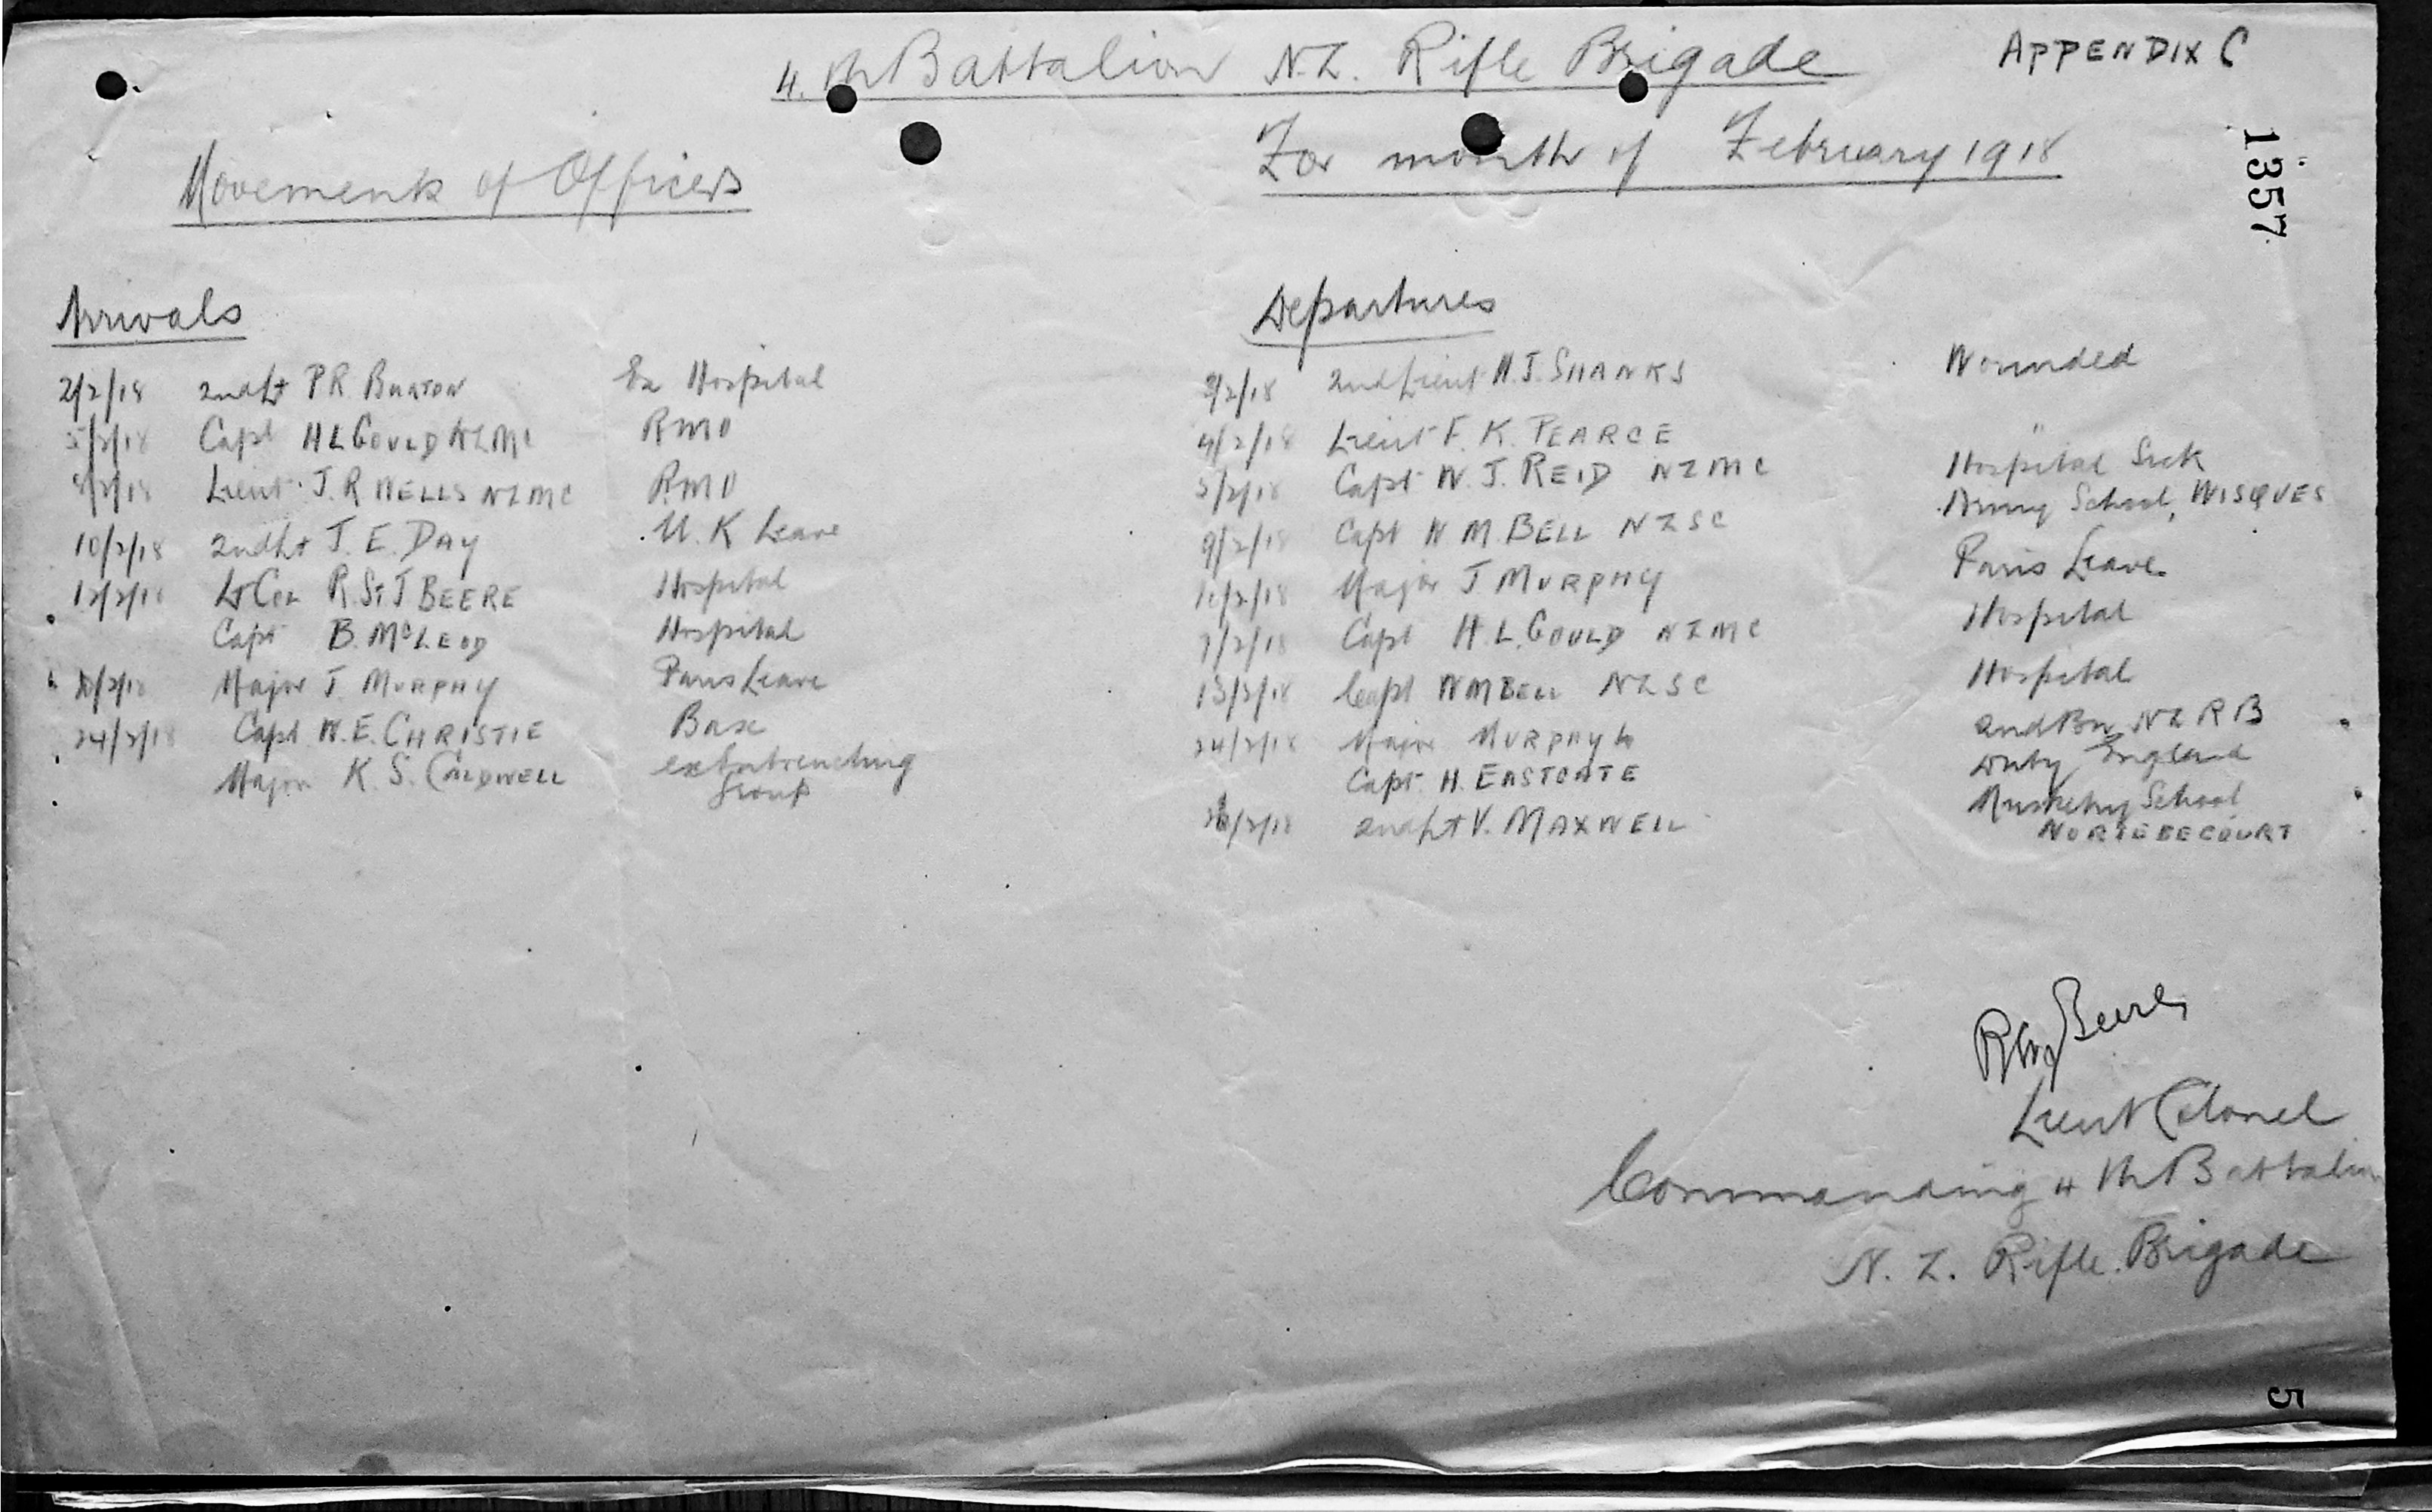 APPENDIX C
4th Battalion N.Z. Rifle Brigade
Movements of Officers
For month of February 1918
1357
Arrivals
2/2/18 2nd Lt P R BURTON Ex Hospital
5/2/18 Capt H L GOULD NZMC RMO
Lieut. J. R WELLS NZMC RMO
10/2/18 2nd Lt J. E. DAY U. K Leave
12/2/18 Lt Col R. St J BEERE Hospital
Capt B. McLEOD Hospital
Major J MURPHY Paris Leave
24/2/18 Capt W. E. CHRISTIE Base
Major K. S. CALDWELL
Group
Departures
2nd Lieut H. J. SHANKS Wounded
4/2/18 Lieut F. K. PEARCE "
5/2/18 Capt W. J. REID NZMC Hospital Sick
9/2/18 Capt W M BELL NZSC Army School, WISQUES
Major J MURPHY Paris Leave
7/2/18 Capt H. L. GOULD NZMC Hospital
13/2/18 Capt W M BELL NZSC Hospital
24/2/18 Major MURPHY to 2nd Bn NZRB
Capt. H. EASTGATE Duty England
2nd Lt V. MAXWELL Musketry School
NORTBECOURT
Beere
Lieut Colonel
Commanding 4th Battalion
N. Z. Rifle Brigade
5